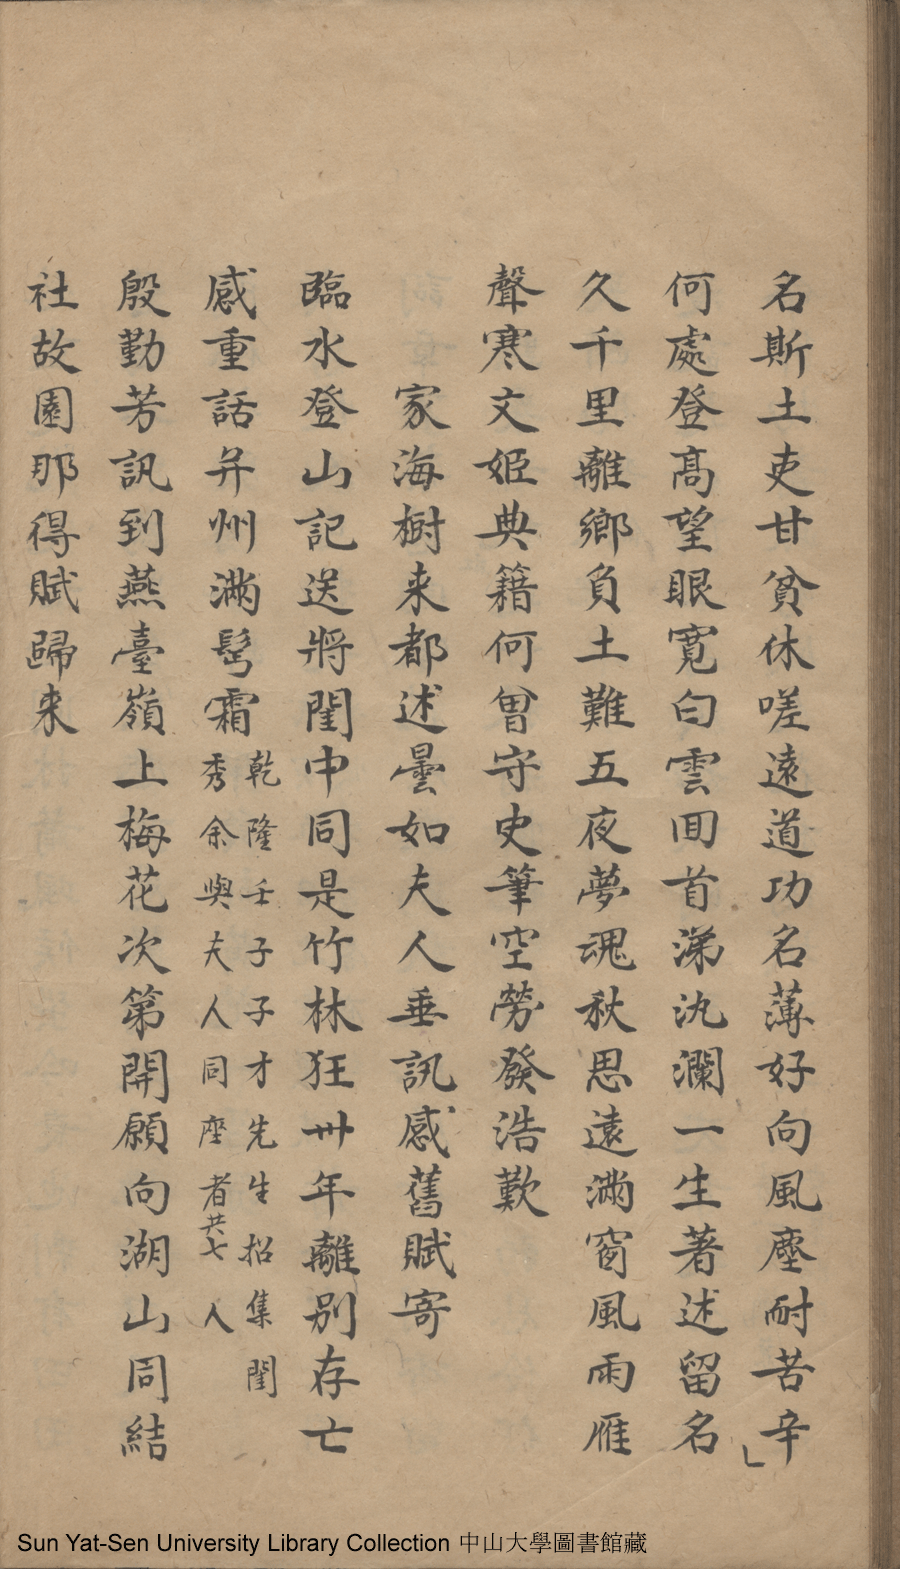 名斯土吏甘貧休嗟遠道功名薄好向風塵耐苦辛」
何處登高望眼寬白雲囬首涕汍瀾一生著述留名
久千里離鄉負土難五夜夢魂秋思遠滿窗風雨雁
聲寒文姬典籍何曾守史筆空勞發浩歎
家海樹来都述曇如夫人垂訊感舊賦寄
臨水登山記送將閨中同是竹林狂卅年離別存亡
感重話并州滿髩霜
乾隆壬子子才先生招集閨
秀余與夫人同座者共七人
殷勤芳訊到燕臺嶺上梅花次第開願向湖山同結
社故園那得賦歸来
Sun Yat-Sen University Library Collection 中山大學圖書館藏